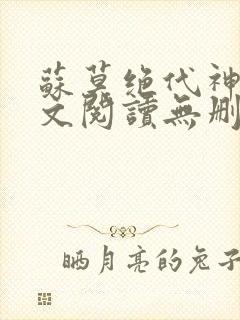 蘇莫绝代神
文閱讀無刪
晒月亮的兔子